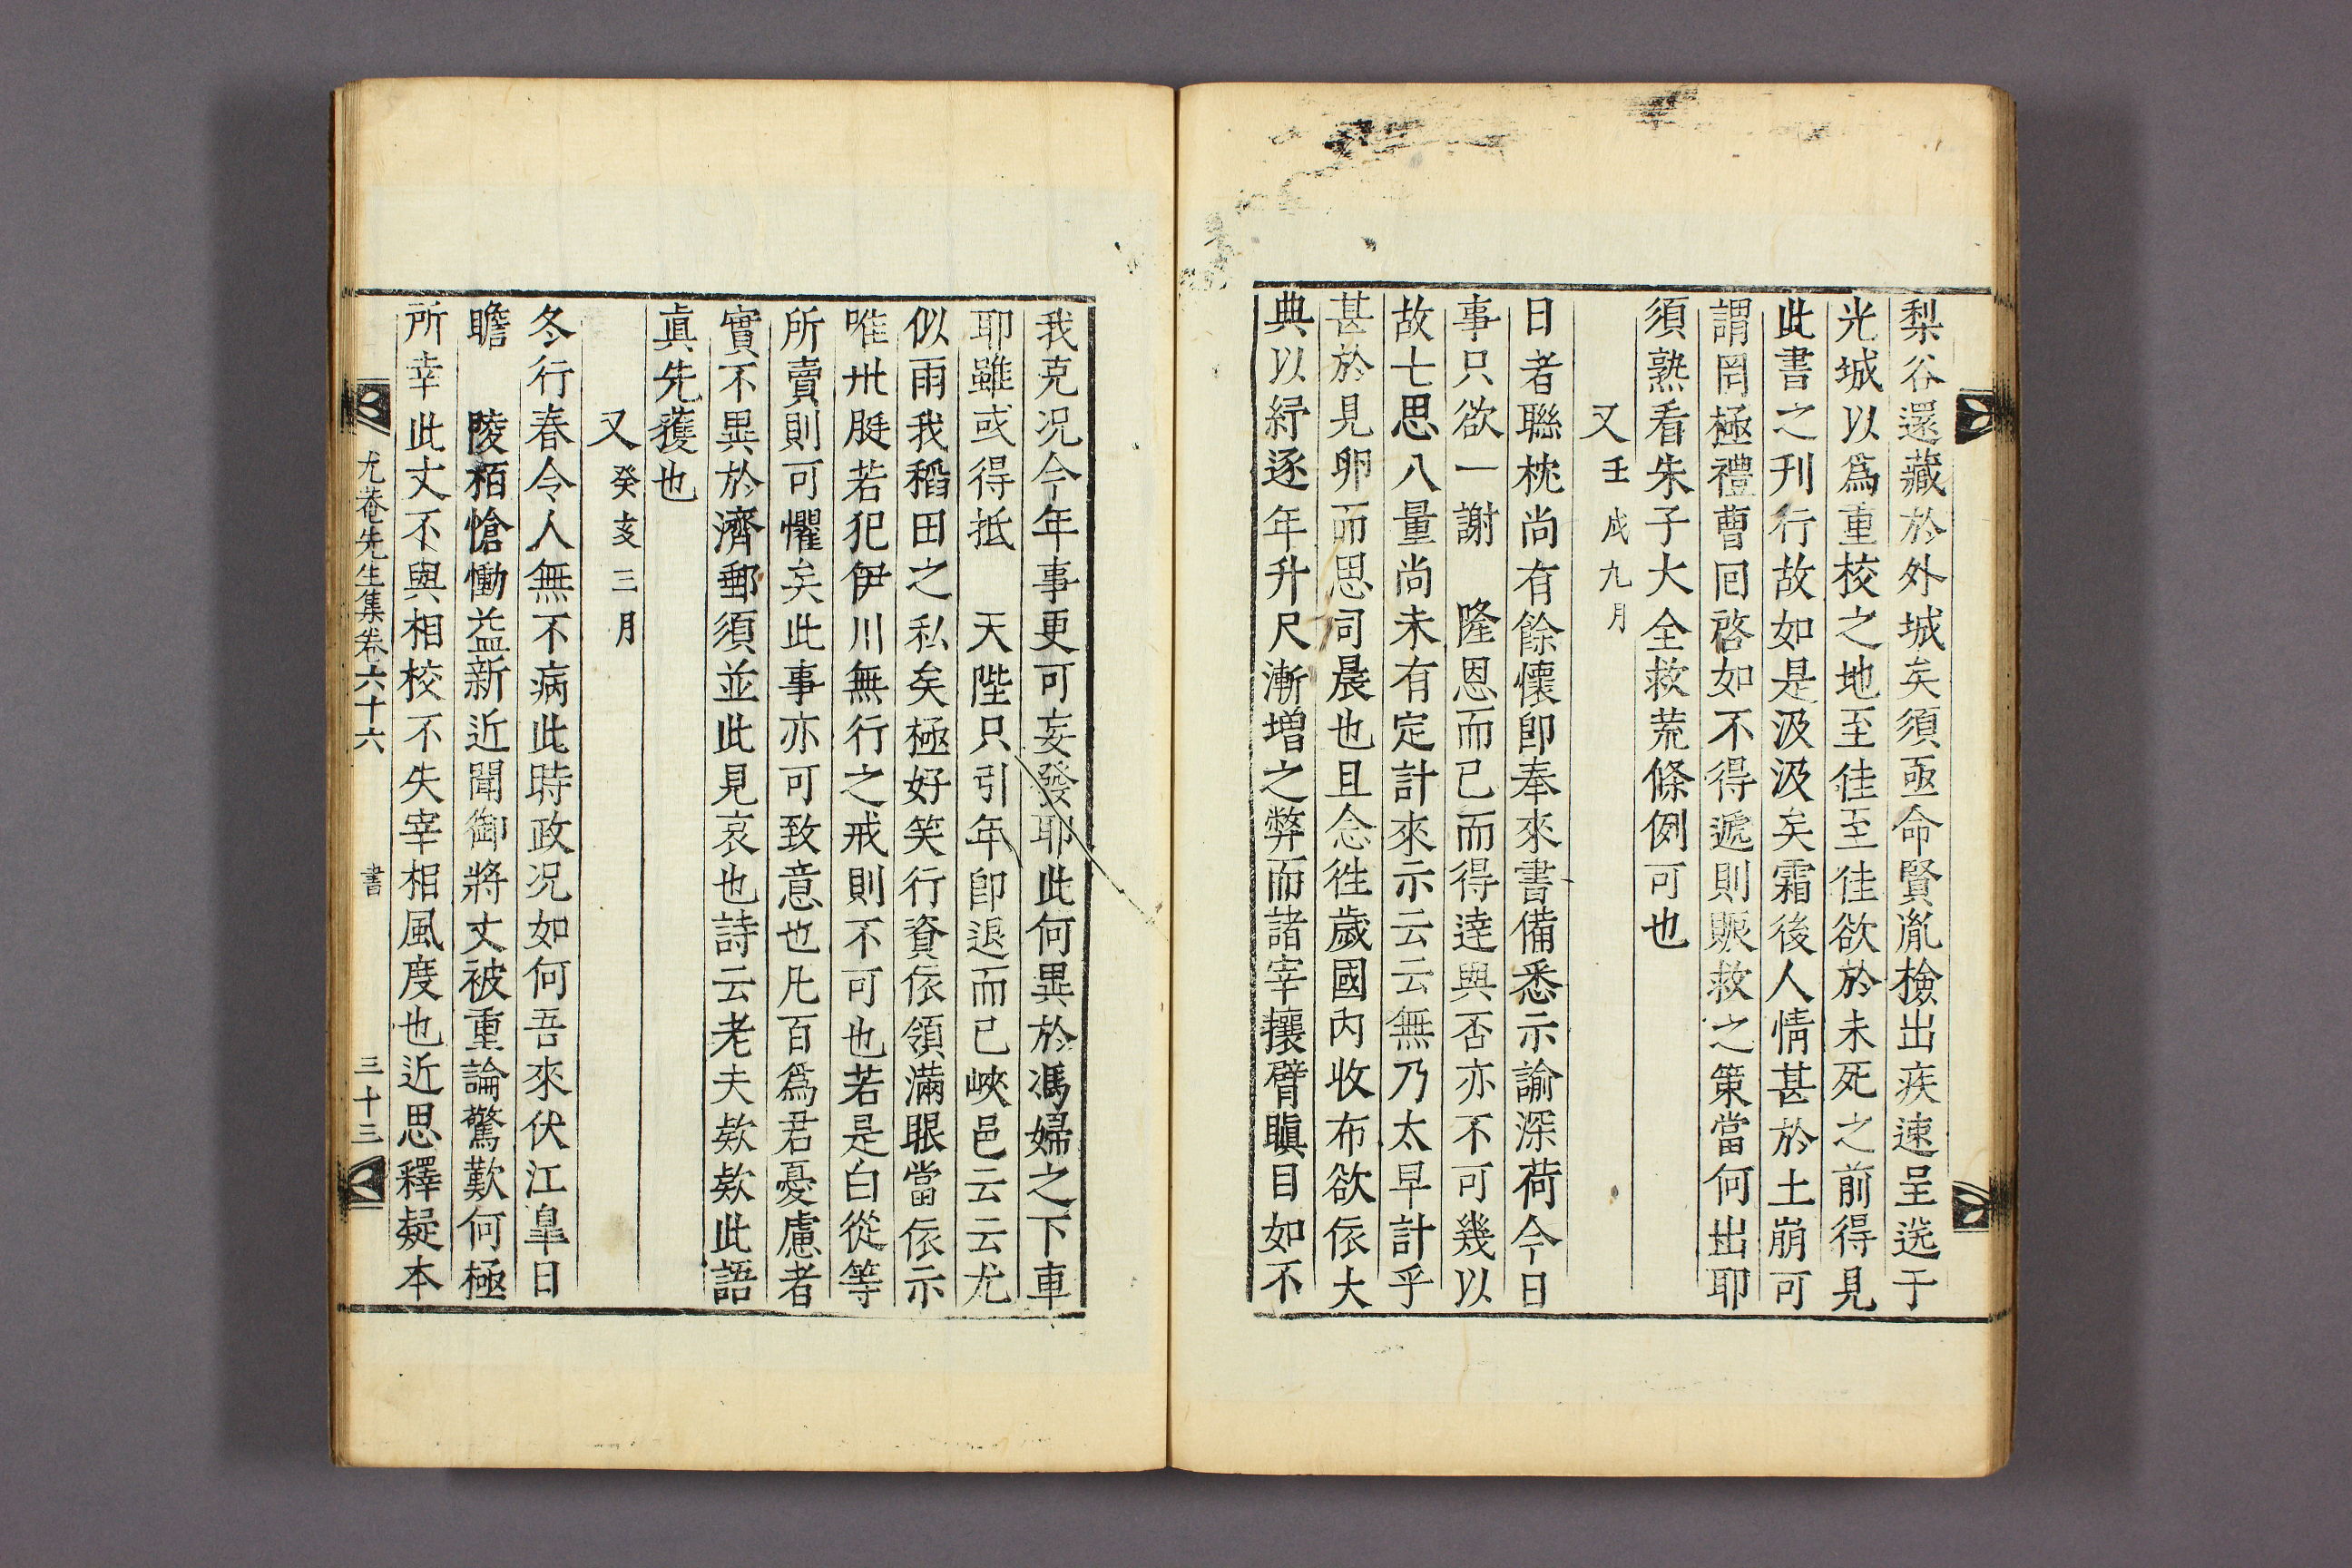 梨谷還藏於外城矣須亟命賢胤檢出疾速呈送于
光城以爲重校之地至佳至佳欲於未死之前得見
此書之刊行故如是汲汲矣霜後人情甚於土崩可
謂罔極禮曹回啓如不得遞則賑救之策當何出耶
須熟看朱子大全救荒條例可也
又壬戌九月
日者聯枕尚有餘懷卽奉來書備悉示諭深荷今日
事只欲一謝　隆恩而已而得達與否亦不可幾以
故七思八量尚未有定計來示云云無乃太早計乎
甚於見卵而思司晨也且念徃歲國內收布欲依大
典以紓逐年升尺漸增之弊而諸宰攘臂瞋目如不
我克况今年事更可妄發耶此何異於馮婦之下車
耶雖或得抵　天陛只引年卽退而已峽邑云云尤
似雨我稻田之私矣極好笑行資依領滿眼當依示
唯卅脡若犯伊川無行之戒則不可也若是白從等
所賣則可懼矣此事亦可致意也凡百爲君憂慮者
實不異於濟鄕須並此見哀也詩云老夫欸欸此語
眞先獲也
又癸亥三月
冬行春令人無不病此時政况如何吾來伏江臯日
瞻　陵栢愴慟益新近聞御將丈被重論驚歎何極
所幸此丈不與相校不失宰相風度也近思釋疑本
尤菴先生集卷六十六　書　三十三